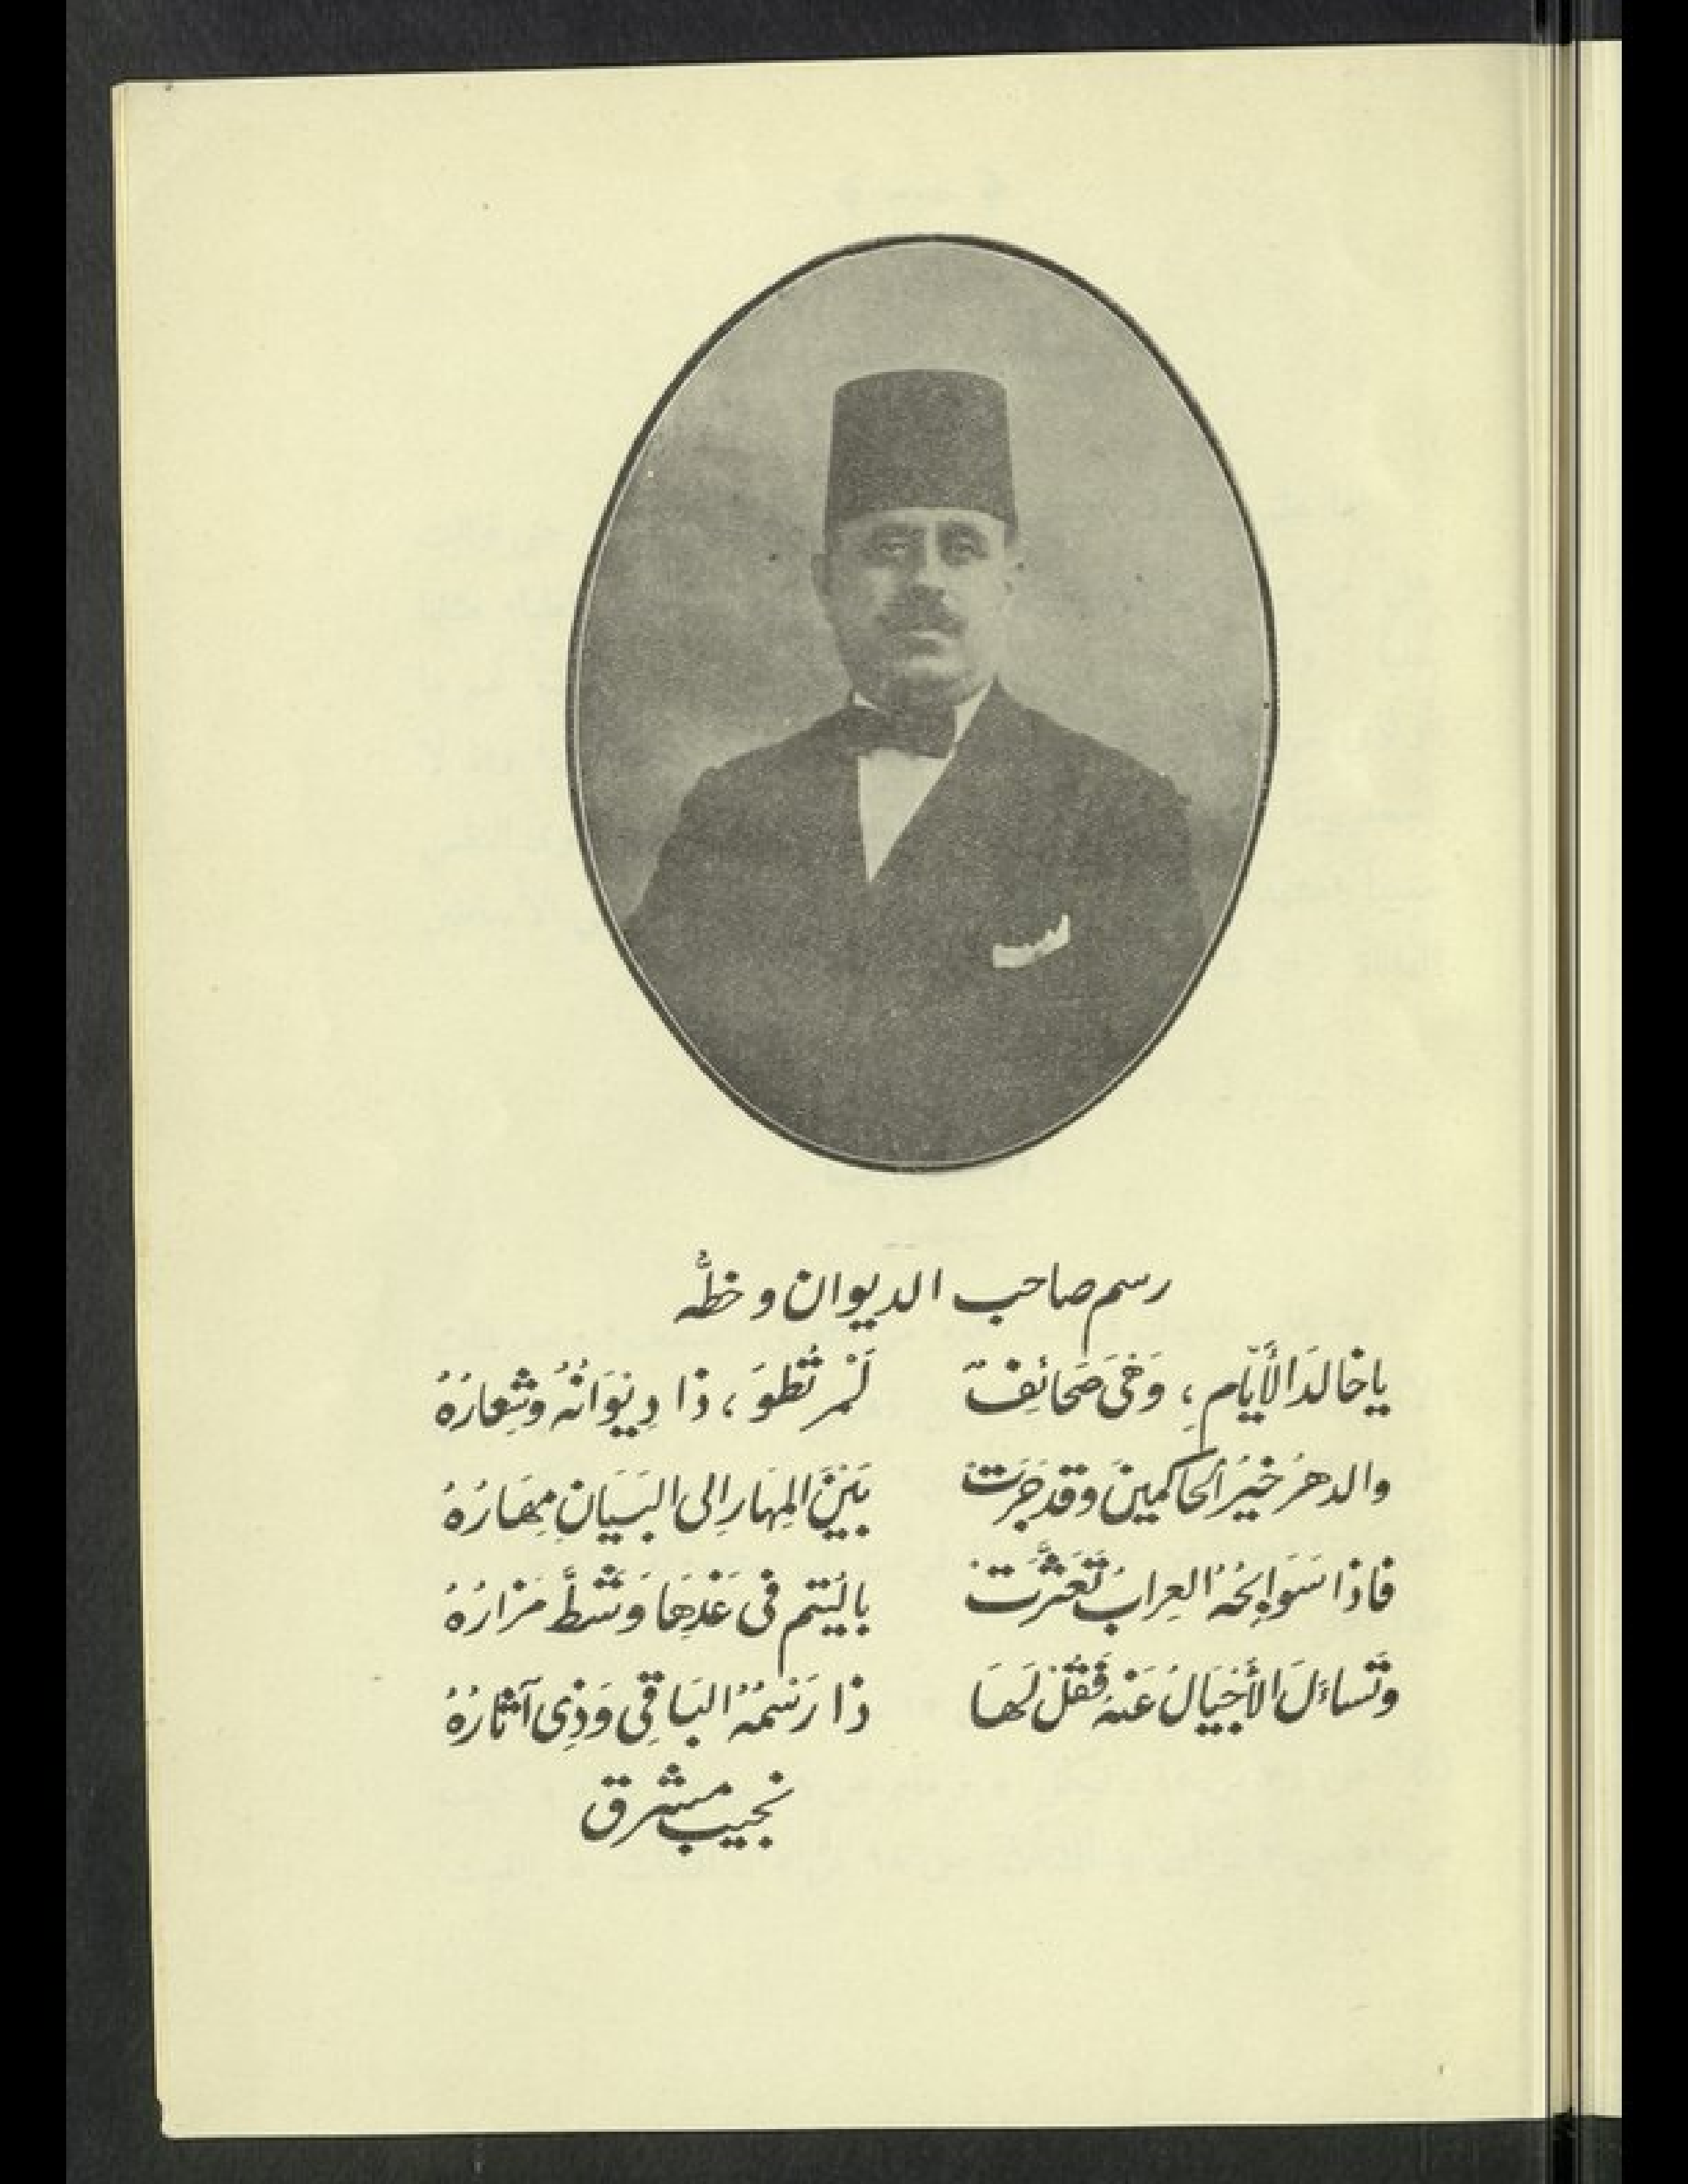 رسم صاحب الديوان وخطُّه
يا خالدَ الأَيّامِ ، وَهْيَ صَحَائِفٌ لَمْ تُطْوَ ، ذا دِيْوَانُهُ وَشِعَارُهُ
والدهرُ خيْرُ الحاكمينَ وقد جَرَتْ بَيْنَ المِهَارِ إِلى البَيَانِ مِهَارُهُ
فاذا سَوَابِحُهُ العِرابُ تَعَثَّرَتْ باليُتمِ في غَدِهَا وَشَطَّ مَزَارُهُ
وتَساءَلَ الأَجْيَالُ عَنْهُ فَقُلْ لَهَا ذا رَسْمُهُ البَاقِي وَذِي آثارُهُ
نجيب مشرق